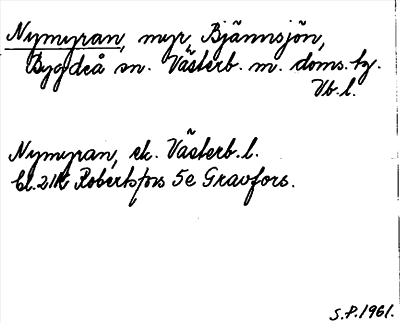 Nymyran, myr, Bjännsjön,
Bygdeå sn. Västerb. m. doms. tg.
Vb. l.
Nymyran, ek. Västerb. l.
Bl. 21K Robertsfors 5e Gravfors.
S.P. 1961.